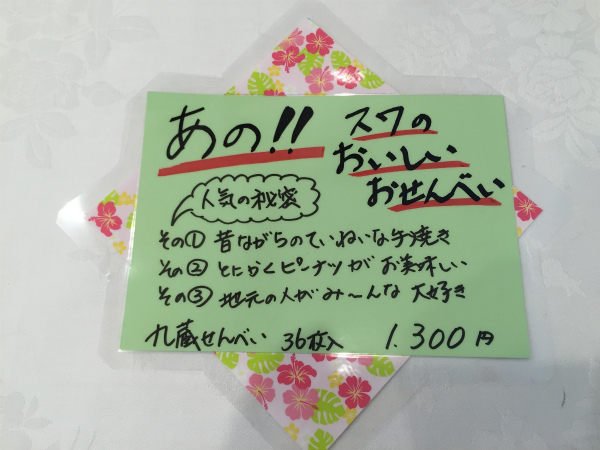 あの!!
スワの
おいしい
おせんべい
人気の秘密
その① 昔ながらのていねいな手焼き
その② とにかくピーナツがお美味しい
その③ 地元の人がみ〜んな大好き
九蔵せんべい 36枚入 1.300円